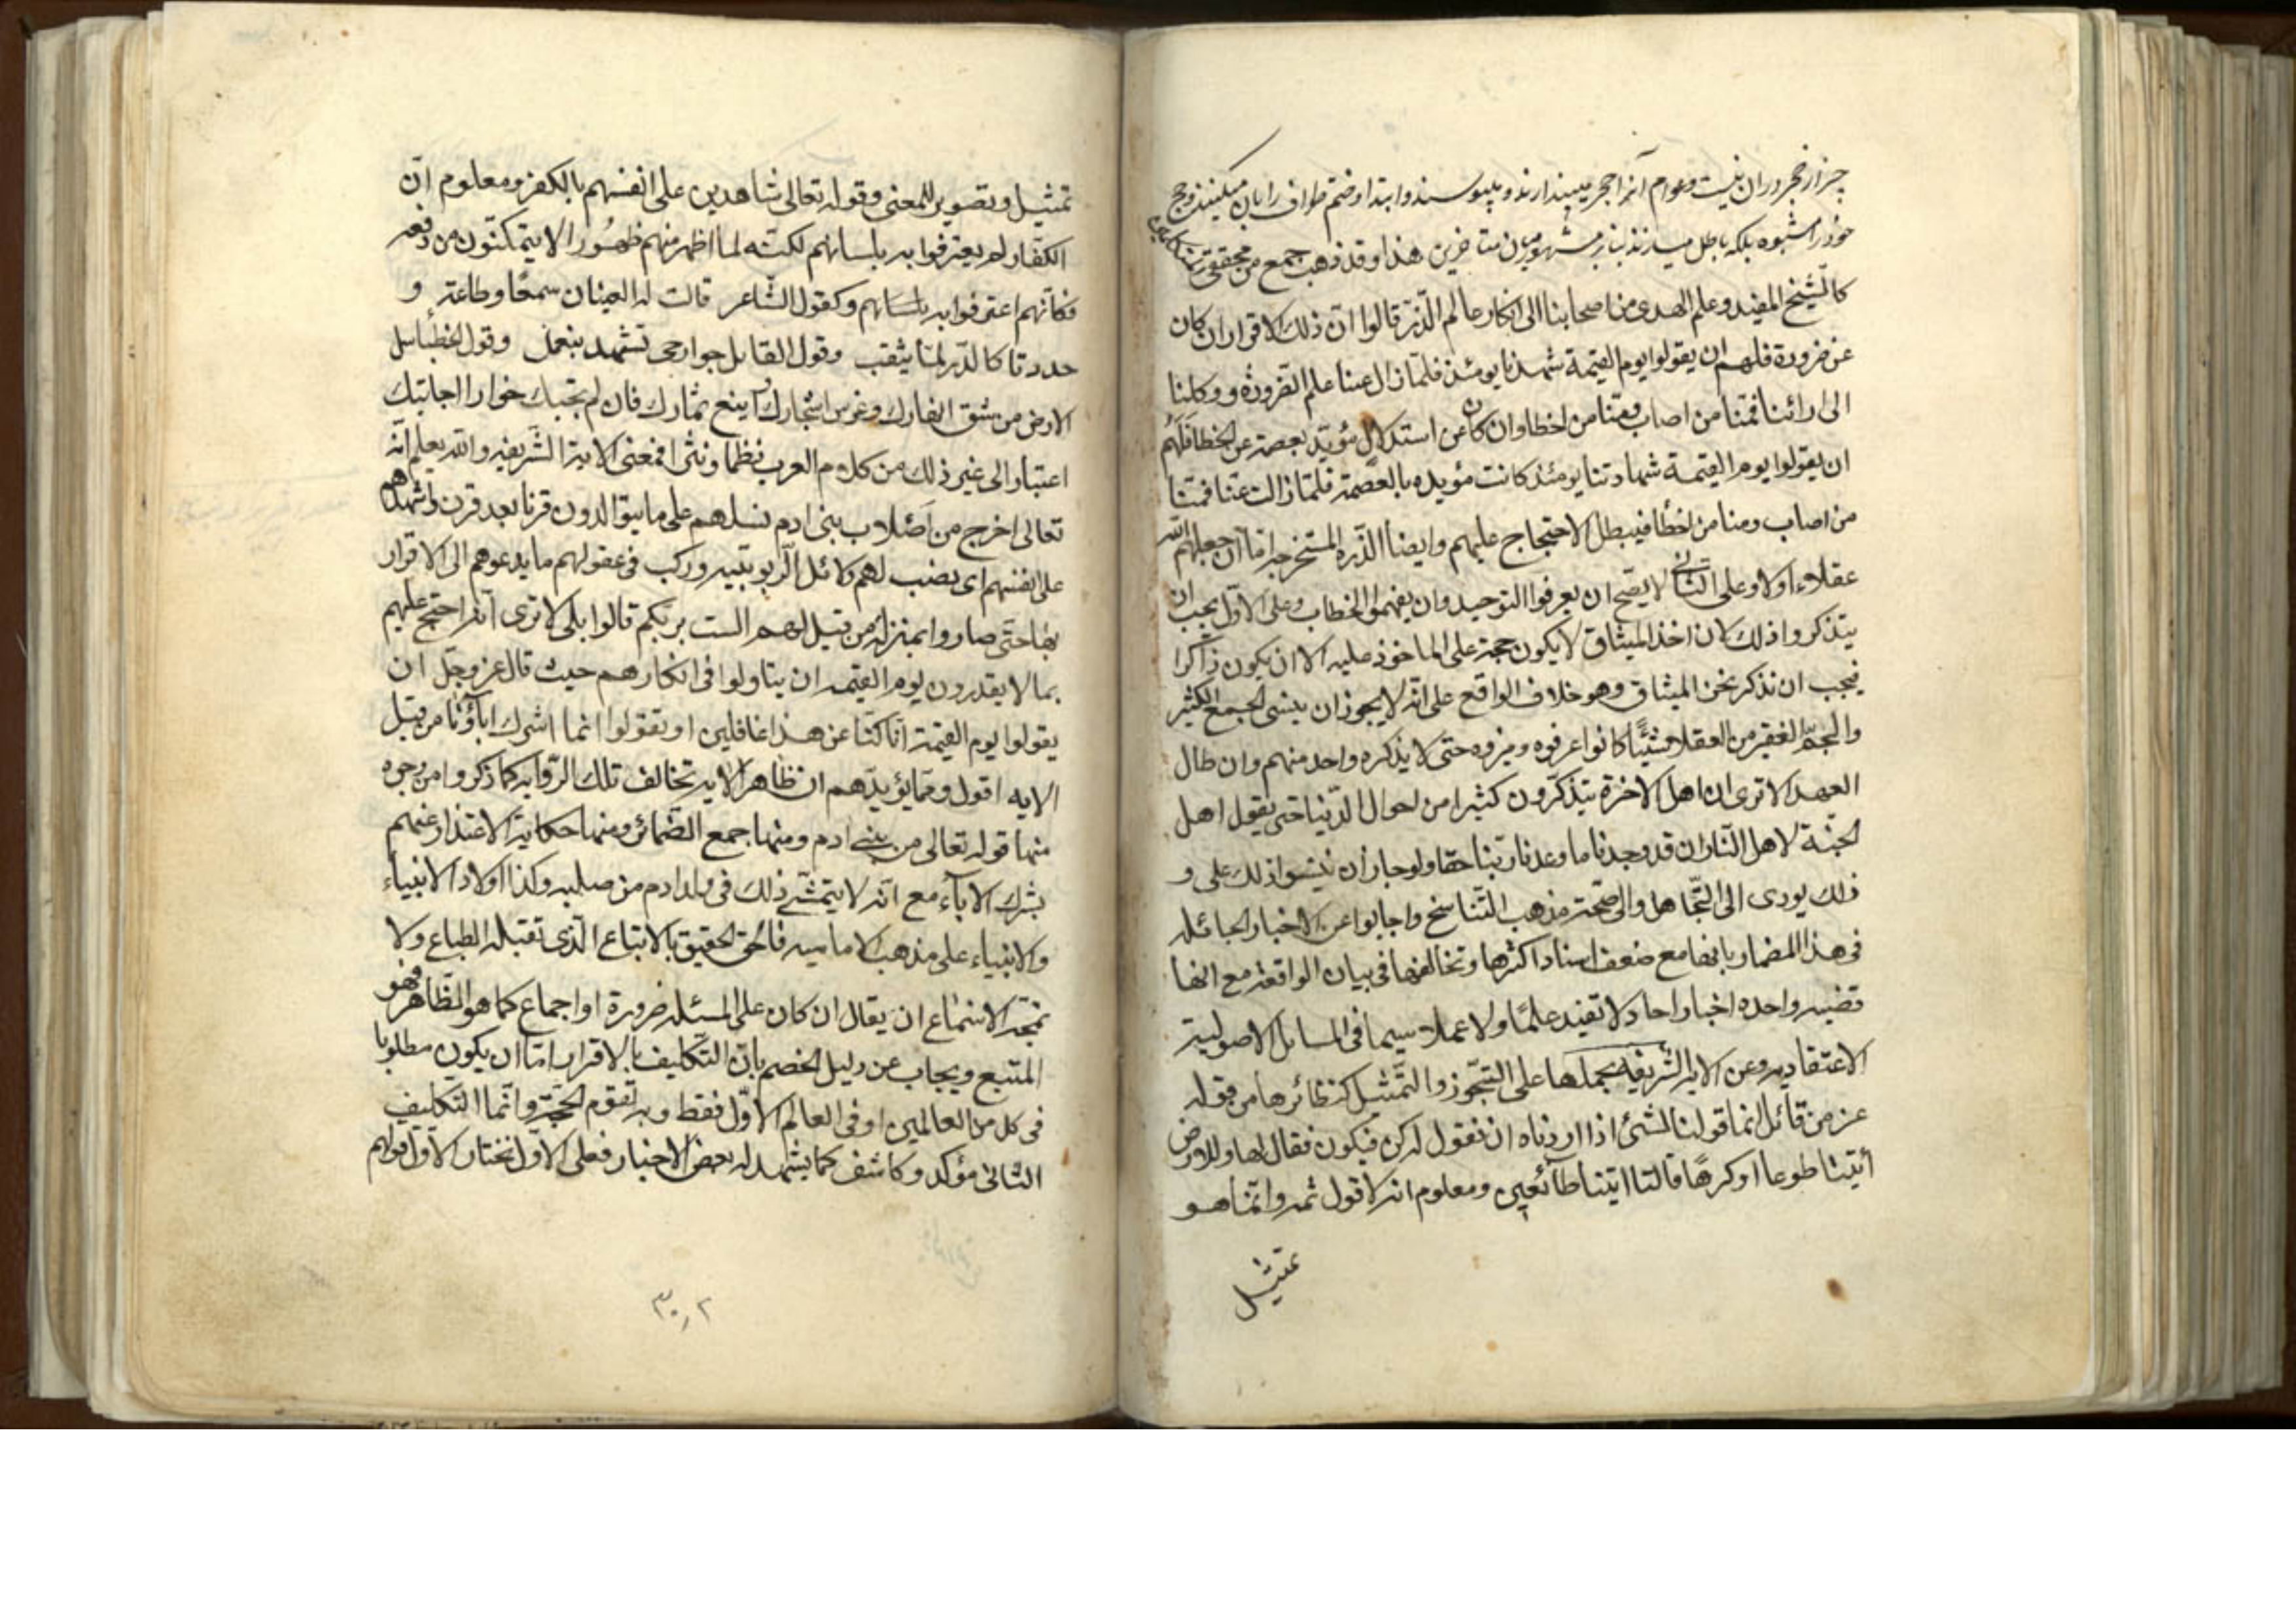 جز از حجر در ان نیست وعوام آنرا حجر میپندارند و میبوسند وابتدا وختم طواف را بان میکنند وحج
خود را مشبوه بلکه باطل میسازند بنابر مشهور میان متاخرین هذا وقد ذهب جمع من محققی
كالشيخ المفيد وعلم الهدى من اصحابنا الى انكار عالم الذّر قالوا انّ ذلك الاقرار ان كان
عن ضرورة فلهم ان يقولوا يوم القيمة شهدنا يومئذ فلمّا زال عنا علم الضّرورة ووكلنا
الى ارائنا فمنّا من اصاب ومنّا من اخطا وان كان عن استدلال مؤيّد بعصمة عن الخطا فلهم
ان يقولوا يوم القيمة شهادتنا يومئذ كانت مؤيده بالعصمة فلمّا زالت عنّا فمنّا
من اصاب ومنا من اخطأ فيبطل الاحتجاج عليهم وايضا الذّره المستخرجة امّا ان جعلهم الله
عقلاء اولا وعلى الثانى لا يصّح ان يعرفوا التوحيد وان يفهموا الخطاب وعلى الاوّل يجب ان
يتذكروا ذلك لان اخذ الميثاق لا يكون حجة على الماخوذ عليه الا ان يكون ذاكرا
فيجب ان نذكر نحن الميثاق وهو خلاف الواقع على انّه لا يجوز ان ينسى الجمع الكثير
والجمّ الغفير من العقلا شيئًا كانوا عرفوه وميزوه حتى لا يذكره واحد منهم وان طال
العهد الا ترى ان اهل الاخرة يتذكّرون كثيرا من احوال الدّنيا حتى يقول اهل
الجنّة لاهل النّار ان قد وجدنا ما وعدنا ربّنا حقا ولو جاز ان ينسوا ذلك على و
ذلك يودى الى التّجاهل والى صحّة مذهب التّناسخ واجابوا عن الاخبار الجائله
فى هذا المضمار بانها مع ضعف اسناد اكثرها وتخالفها فى بيان الواقعة مع انها
قضيه واحده اخبار احاد لا تفيد علمًا ولا عملا سيما فى المسايل الاصولية
الاعتقاديه وعن الاية الشريفه بحملها على التّجوّز والتّمثيل كنظائرها من قوله
عز من قائل انما قولنا لشئ اذا اردناه ان نقول له كن فيكون فقال لها وللارض
أئتيا طوعا او كرهًا قالتا اتينا طآئعين ومعلوم انه لا قول ثمه وانّما هو
تمثيل
تمثيل وتصوير للمعنى وقوله تعالى شاهدين على انفسهم بالكفر ومعلوم انّ
الكفّار لم يعترفوا به بلسانهم لكنّه لما اظهر منهم ظهورا لا يتمكنون من دفعه
فكانّهم اعترفوا به بلسانهم وكقول الشاعر قالت له العينان سمعًا وطاعة و
حدرتا كالدّر لمّا يثقب وقول القايل جوارحى تشهد بنعمك وقول الخطبا سل
الارض من شق انهارك وغرس اشجارك واينع ثمارك فان لم تجبك حوارا اجابتك
اعتبارا الى غير ذلك من كلام العرب نظما ونثرا فمعنى الاية الشريفه والله يعلم انّه
تعالى اخرج من اصلاب بنى ادم نسلهم على ما يتوالدون قرنا بعد قرن واشهدهم
على انفسهم اى نصب لهم دلائل الرّبوبيّه وركب فى عقولهم ما يدعوهم الى الاقرار
بها حتى صاروا بمنزلة من قيل لهم الست بربّكم قالوا بلى الا ترى انّه احتج عليهم
بما لا يقدرون يوم القيمه ان يتاولوا فى انكارهم حيث قال عز وجّل ان
يقولوا يوم القيمة انّا كنّا عن هذا غافلين او تقولوا انما اشرك اباؤنا من قبل
الايه اقول وممّا يؤيّدهم ان ظاهر الاية تخالف تلك الرّوايه كما ذكروا من وجوه
منها قوله تعالى من بنى ادم ومنها جمع الضّمائر ومنها حكاية الاعتذار عنهم
بشرك الآباء مع انّه لا يتمشّى ذلك فى ولد ادم من صلبه وكذا اولاد الانبياء
والانبياء على مذهب الاماميه فالحقّ الحقيق بالاتباع الّذى تقبله الطباع ولا
تمجّه الاسماع ان يقال ان كان على المسئله ضرورة او اجماع كما هو الظّاهر فهو
المتبع ويجاب عن دليل الخصم بانّ التّكليف بالاقرار امّا ان يكون مطلوبا
فى كل من العالمين او فى العالم الاوّل فقط وبه تقوم الحجّة وانّما التّكليف
الثانى مؤكد وكاشف كما يشهد له بعض الاخبار فعلى الاوّل نختار الاوّل قولهم